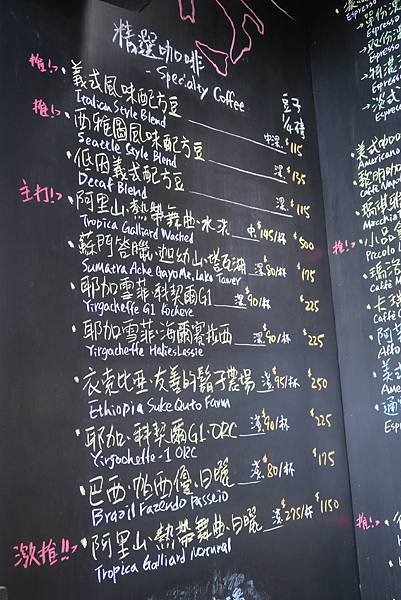 精選咖啡
- Specialty Coffee
豆子
1/4磅
推!›・義式風味配方豆 中深 $115
Italian Style Blend
推!›・西雅圖風味配方豆 深 $135
Seattle Style Blend
・低因義式配方豆 深 $115
Decaf Blend
主打!›・阿里山・熱帶舞曲・水洗 中 $145/杯 $500
Tropica Galliard Washed
・蘇門答臘・迦幼山・塔瓦湖 深 $80/杯 $175
Sumatra Ache Gayo Mt. Laka Tawer
・耶加雪菲・科契爾G1 淺 $90/杯 $225
Yirgacheffe G1 Kochere
・耶加雪菲・海爾賽拉西 淺 $90/杯 $225
Yirgacheffe HalieSlessie
・衣克比亞・友善的鬍子農場 淺 $95/杯 $250
Ethiopia Suke Quto Farm
・耶加・科契爾G1・ORC 淺 $90/杯 $225
Yirgacheffe-1 ORC
・巴西・帕西優・日曬 淺 $80/杯 $175
Brazil Fazendo Passeio
激推!!›・阿里山・熱帶舞曲・日曬 淺 $275/杯 $1150
Tropica Galliard Natural
Espresso
Espresso
Espresso
Espresso
美式咖
Americano
黎明咖
Caffè
瑪琪雅
Macchia
推!›・小品
Piccolo L
瑞洛
Caffè
卡
Caffè
阿
Affo
美式
Ame
通
Esp
推!›